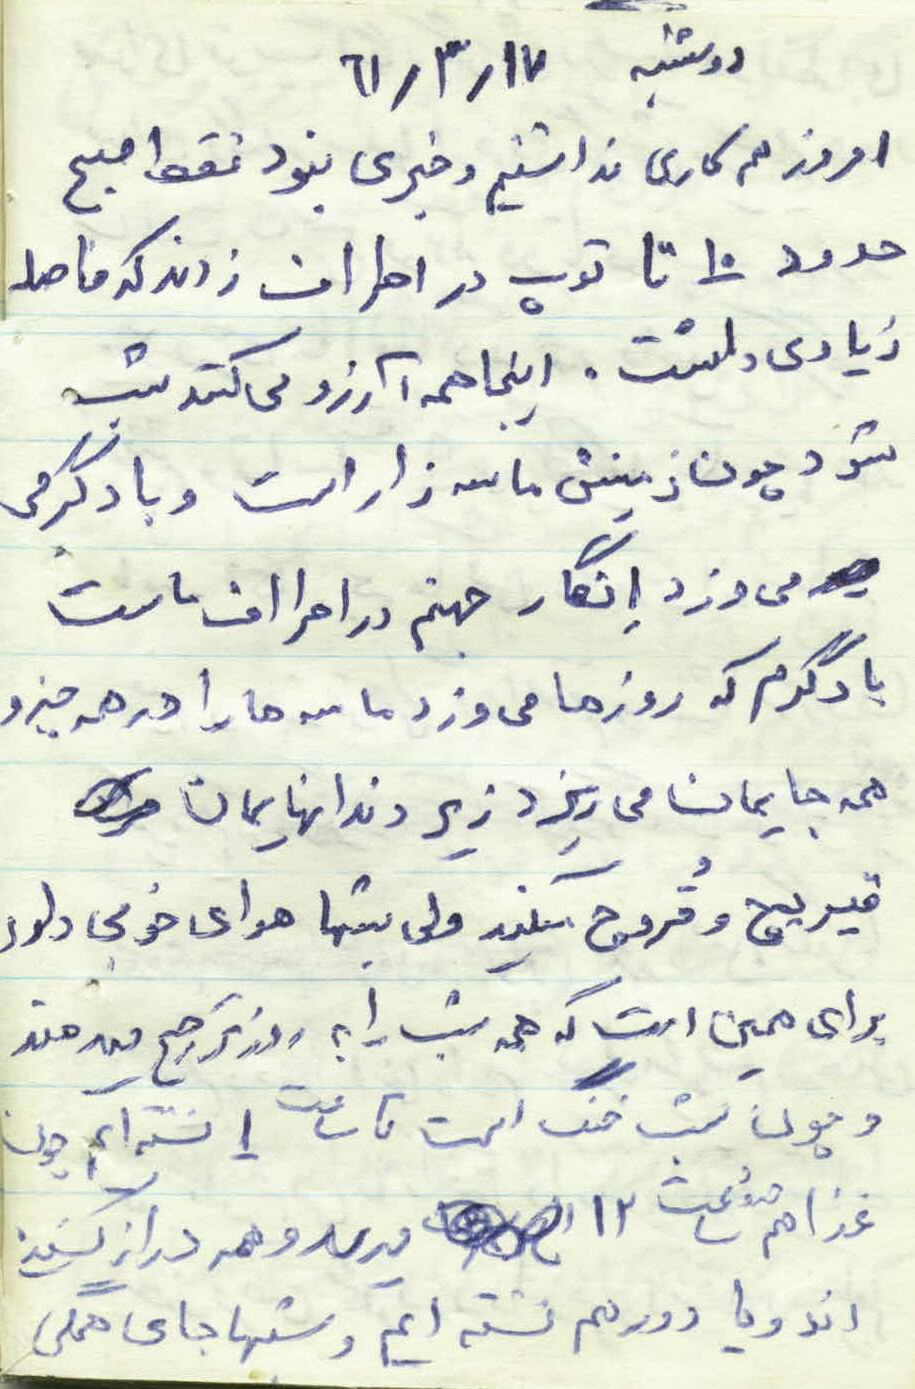 دوشنبه ۶۱/۳/۱۷
امروز هم کاری نداشتیم و خبری نبود فقط صبح
حدود ۱۰ تا توپ در اطراف زدند که فاصله
زیادی داشت. اینجا همه آرزو می کنند شب
شود چون زمینش ماسه زار است و باد گرمی
می وزد انگار جهنم در اطراف ماست
باد گرم که روزها می وزد ماسه ها را در همه چیز و
همه جایمان می ریزد زیر دندانهایمان
قیریچ و قُروچ میکند ولی شبها هوای خوبی دارد
برای همین است که همه شب را به روز ترجیح میدهند
و چون شب خنک است تا ساعت ۱ نشسته ایم چون
غذا هم ساعت ۱۲ میرسد و همه دراز کشیده
اند و یا دور هم نشسته ایم و شبها جای همگی